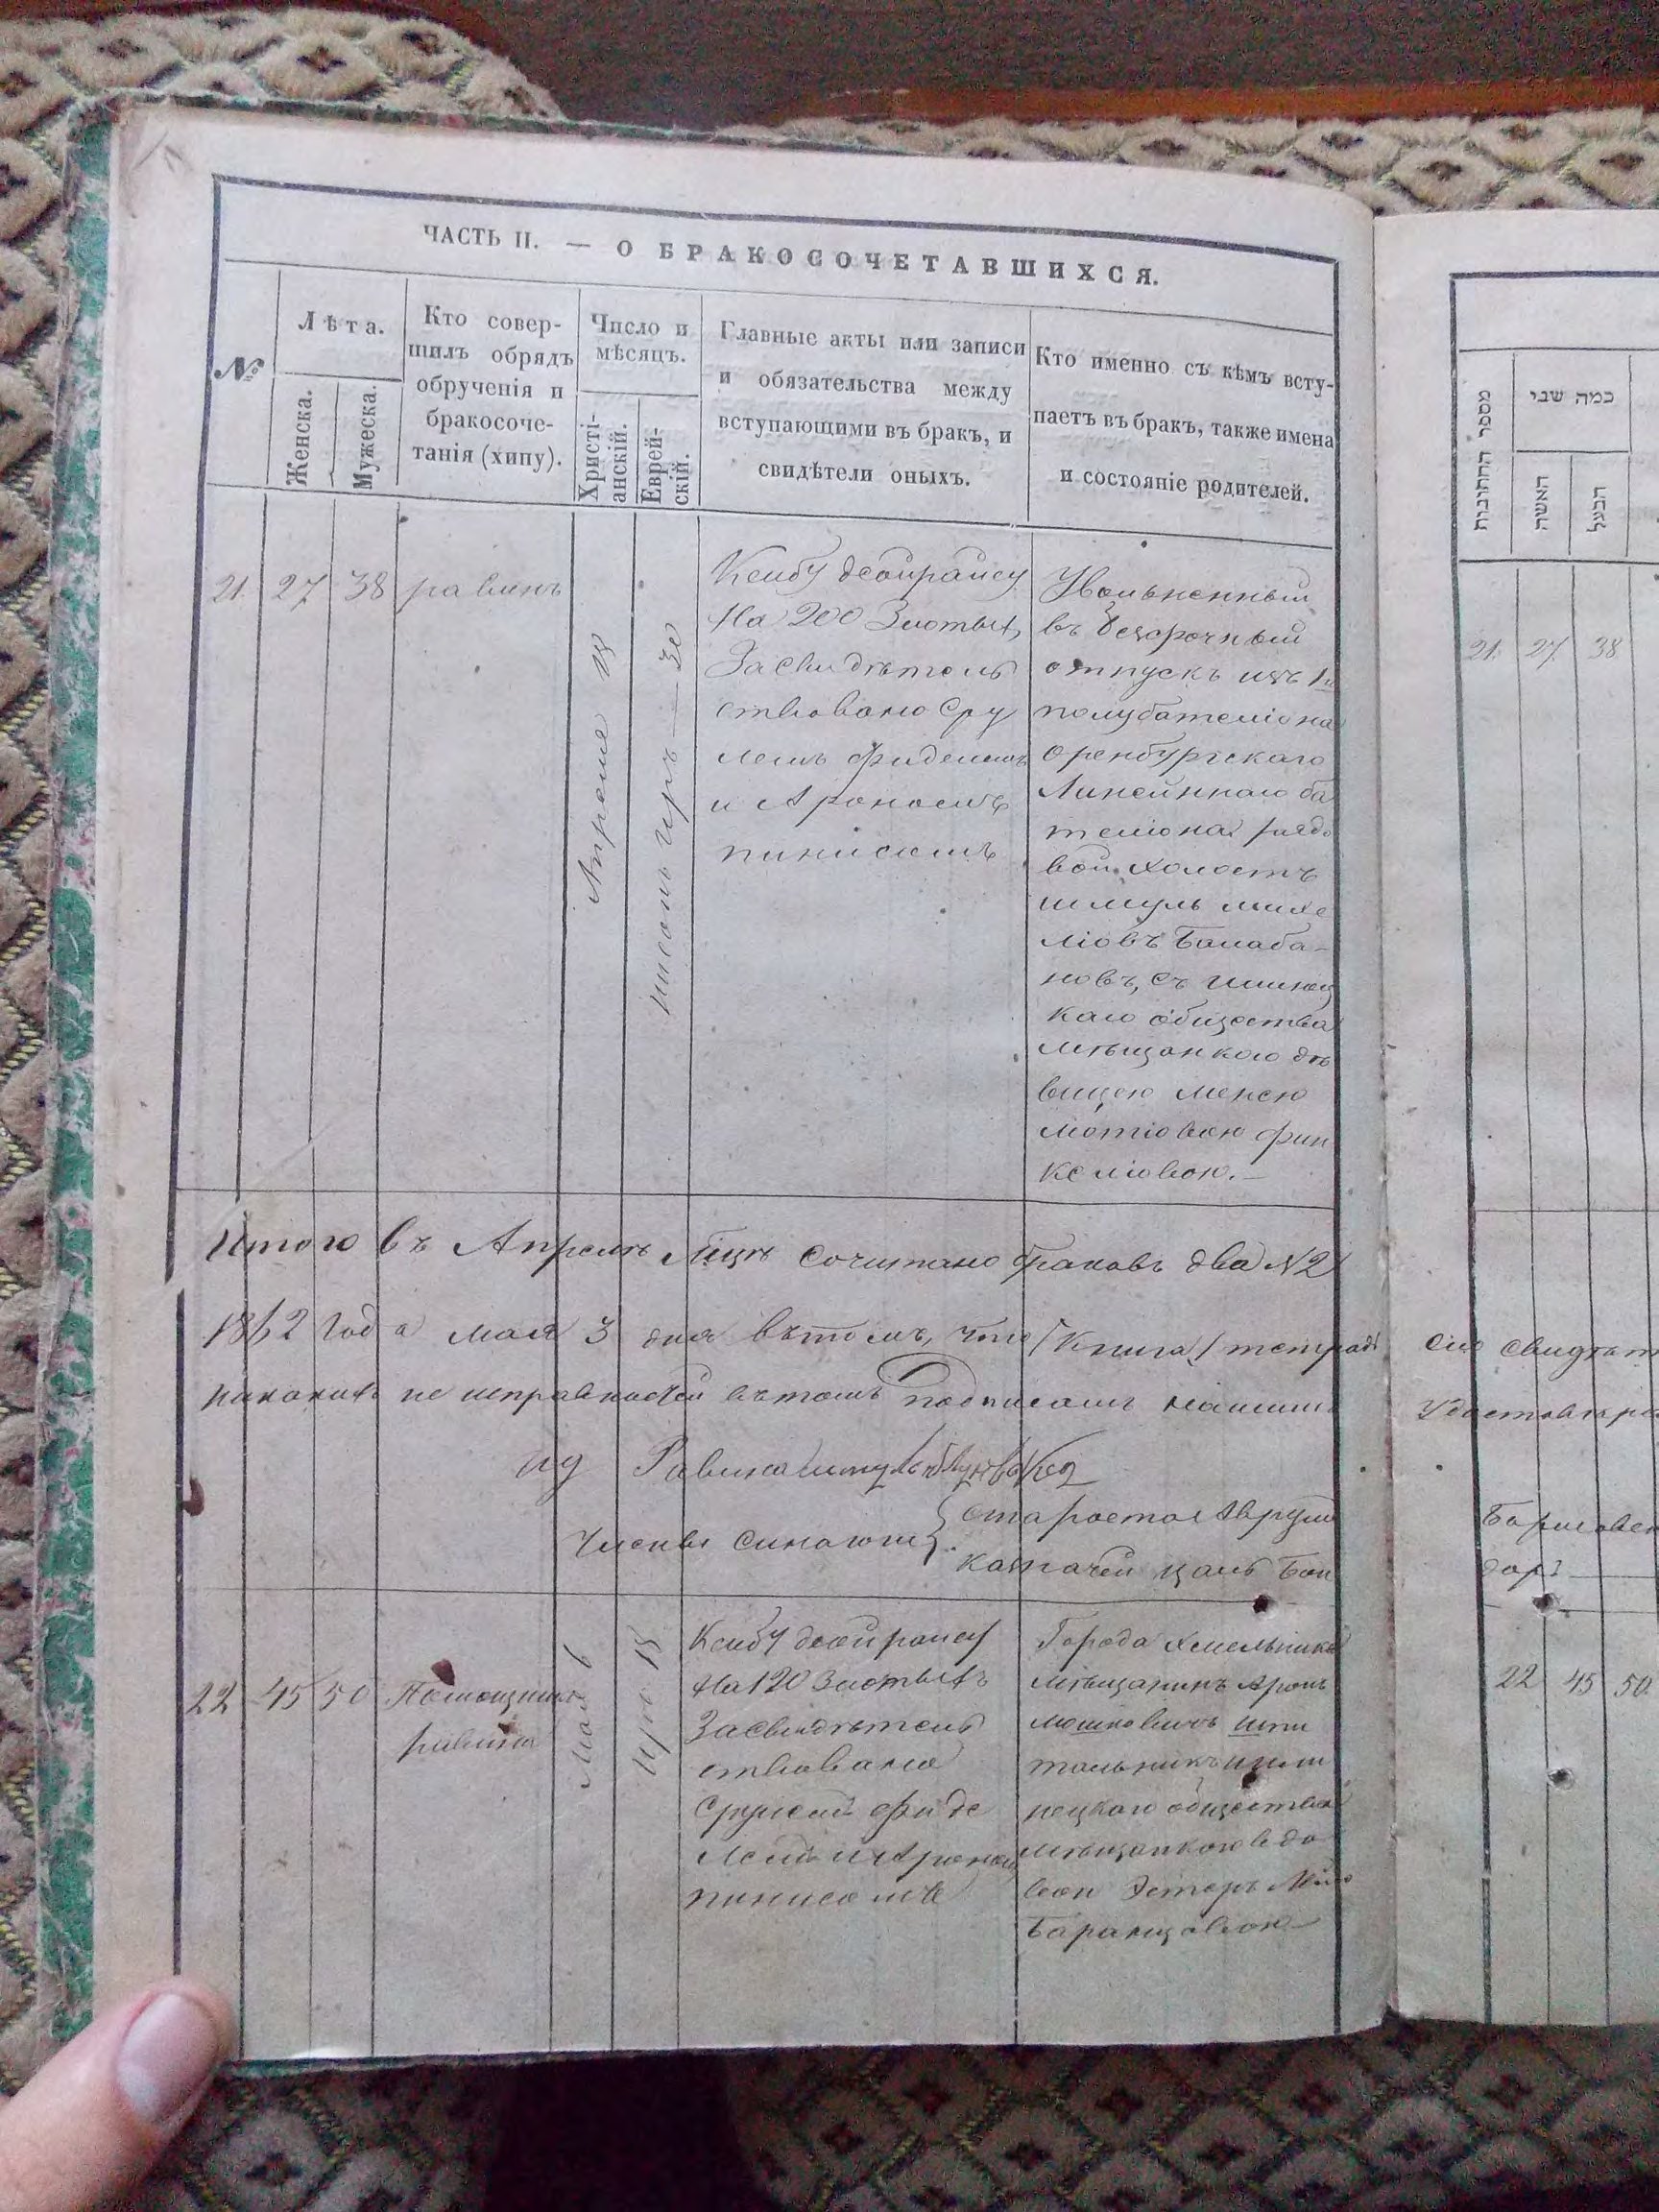 ЧАСТЬ II. — О БРАКОСОЧЕТАВШИХСЯ.
№
Лѣта.
Женска.
Мужеска.
Кто совер-
шилъ обрядъ
обрученія и
бракосоче-
танія (хипу).
Число и
мѣсяцъ.
Христі-
анскій.
Еврей-
скій.
Главные акты или записи
и обязательства между
вступающими въ бракъ, и
свидѣтели оныхъ.
Кто именно съ кѣмъ всту-
паетъ въ бракъ, также имена
и состояніе родителей.
21. 27 38 равинъ
Апреля 18
Иръ — 30
Ксибу деойрайсу
На 200 Злотых,
Засвидѣтель
ствовано Сру
лемъ Фиделемъ
и Арономъ
пинисомъ
Увольненный
въ безсрочный
отпускъ изъ 1й
полубаталіона
Оренбургскаго
Линейнаго ба
таліона рядо
вой холостъ
Шмуль Михе
ліовъ Балаба-
новъ, съ Илинец
каго общества
мѣщанкою дѣ
вицею
Мотіовою Фин
келіовою.—
Итого въ Апрелѣ Мцѣ Сочитано браковъ два №2
1862 года мая 3 дня въ томъ, что / Книга / тетрадь
никакихъ не исправностей въ томъ подписомъ нашимъ
Равина
Члены синагоги
староста Аврум
казначей
22 45 50 Помощникъ
равина
Мая 6
Иръ 18
Ксибу деойрайсу
На 120 Злотыхъ
Засвидѣтель
ствовано
Срулемъ Фиде
лемъ и Арономъ
пинисомъ
Города Хмельника
мѣщанинъ Аронъ
Мошковичъ Шпи
тальникъ Илли
нецкаго общества
мѣщанкою вдо
вою Эстеръ
Баранцовою
מספר החתונות
כמה שני
האשה
הבעל
21. 27. 38
сію
22 45 50.